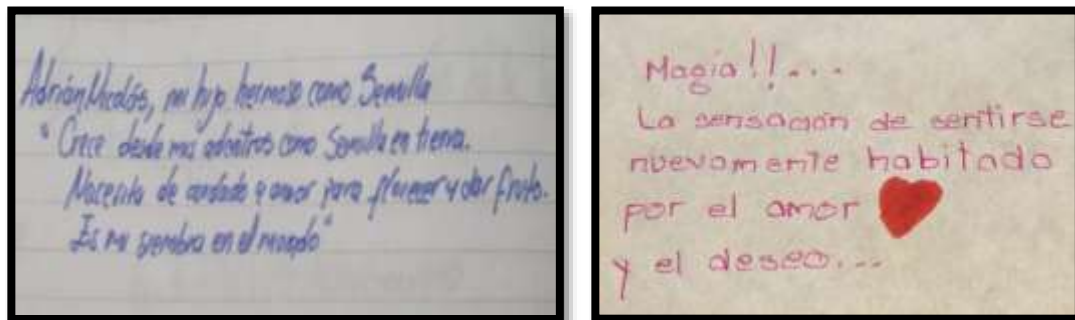 Adrián Nicolás, mi hijo hermoso como Semilla
"Crece desde mis adentros como Semilla en tierra.
Necesita de cuidado y amor para florecer y dar fruto.
Es mi siembra en el mundo"
Magia!!...
La sensación de sentirse
nuevamente habitado
por el amor
y el deseo...